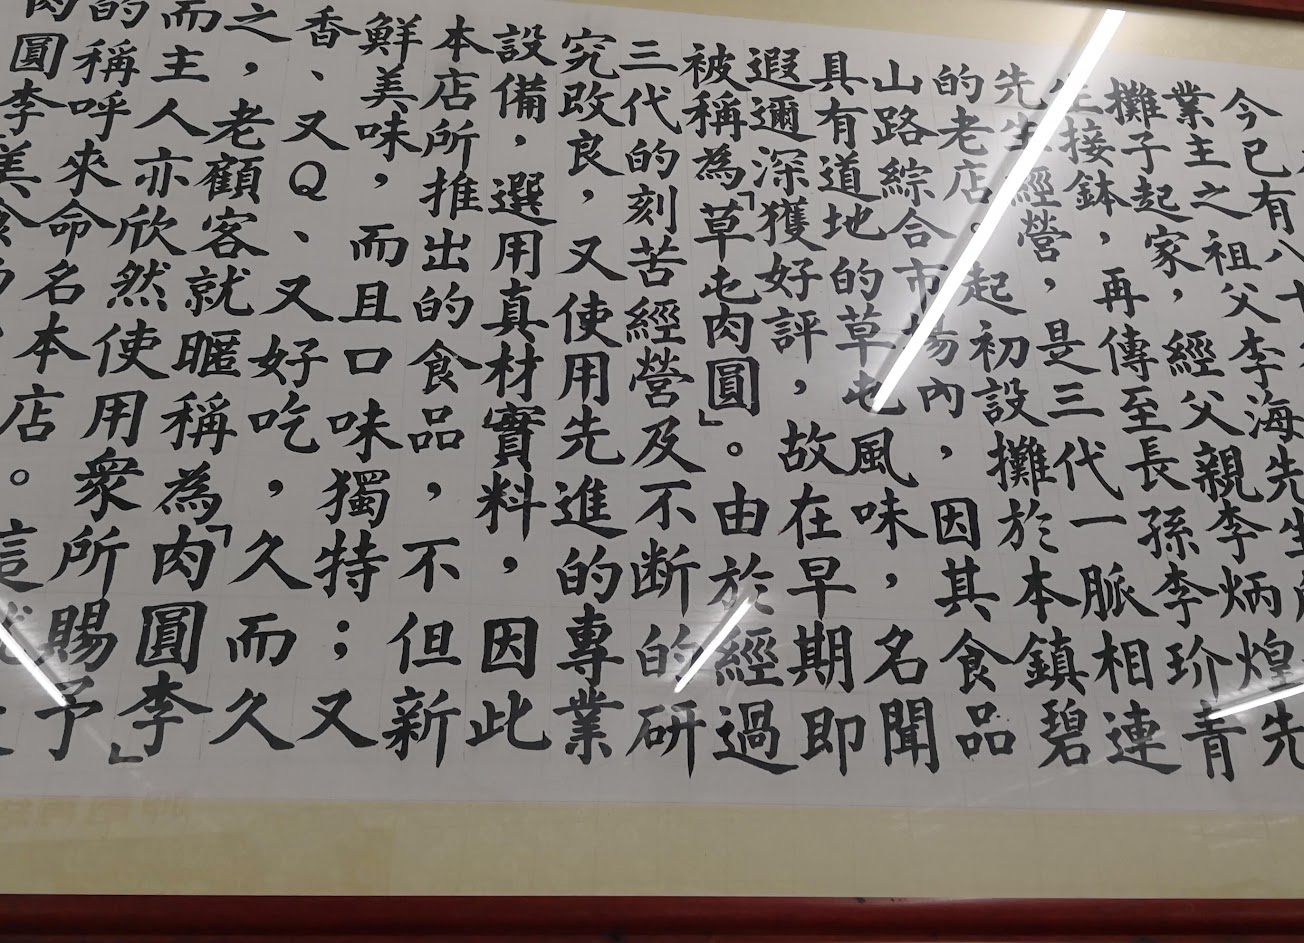 今已有八十
業主之祖父李海先生
攤子起家，經父親李炳煌先
生接鉢，再傳至長孫李玠青
先生經營，是三代一脈相連
的老店。起初設攤於本鎮碧
山路綜合市場內，因其食品
具有道地的草屯風味，名聞
遐邇深獲好評，故在早期即
被稱為「草屯肉圓」。由於經過
三代的刻苦經營及不断的研
究改良，又使用先進的專業
設備，選用真材實料，因此
本店所推出的食品，不但新
鮮美味，而且口味獨特；又
香、又Q、又好吃，久而久
之，老顧客就暱稱為「肉圓李」
而主人亦欣然使用眾所賜予
的稱呼來命名本店。這就
肉圓李美